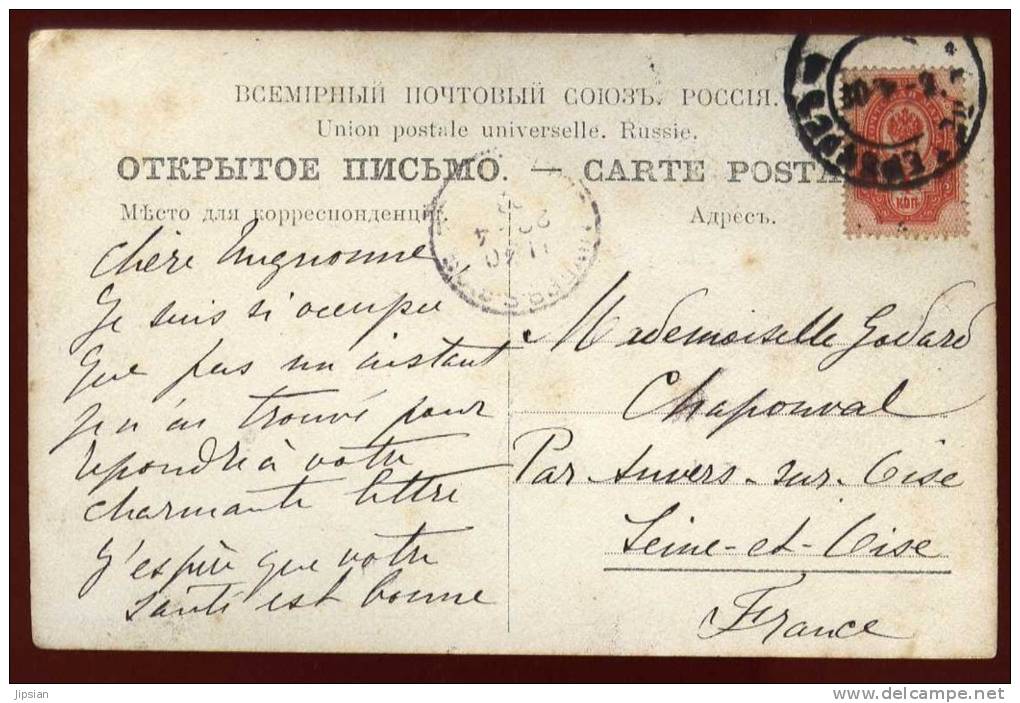 ВСЕМІРНЫЙ ПОЧТОВЫЙ СОЮЗЪ. РОССІЯ.
Union postale universelle. Russie.
ОТКРЫТОЕ ПИСЬМО. — CARTE POSTA
Мѣсто для корреспонденціи.
Адресъ.
КОП
11 40
Chère Mignonne
Je suis si occupée
Que pas un instant
je n'ai trouvé pour
repondre à votre
charmante lettre
J'espère que votre
santé est bonne
Mademoiselle Godard
Chaponval
Par Auvers-sur-Oise
Seine-et-Oise
France
Jipsian
http://www.delcampe.net